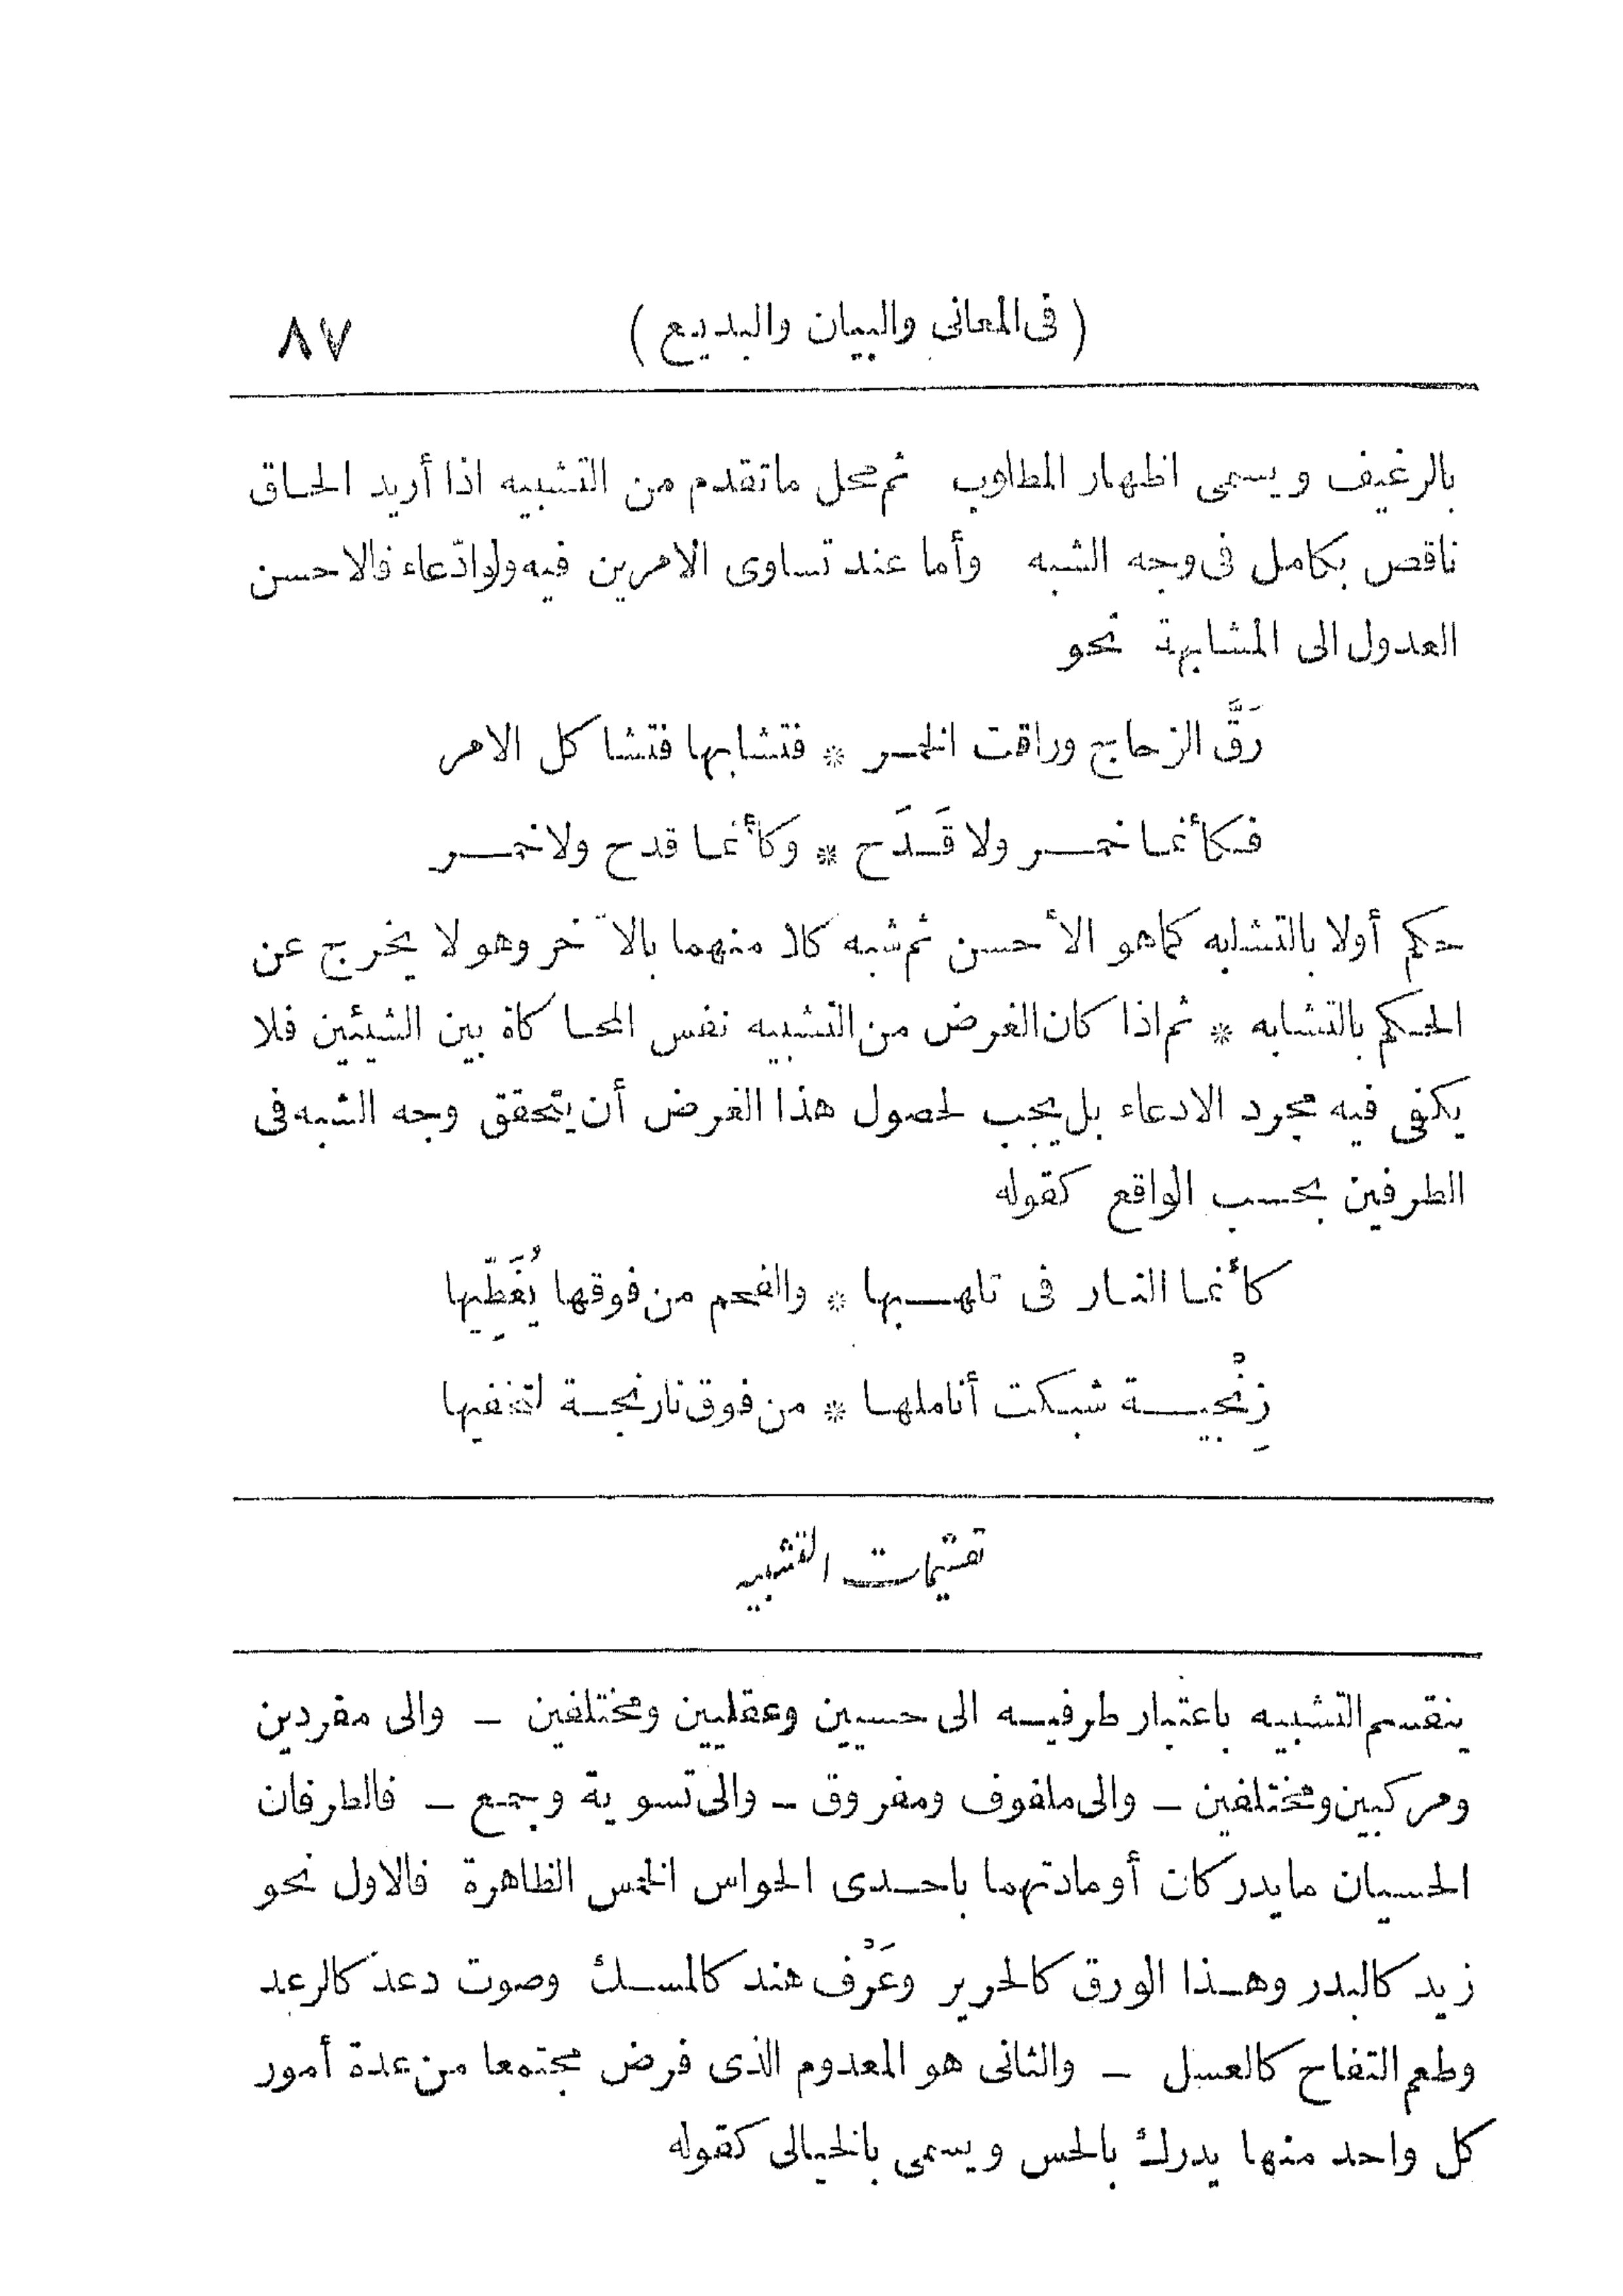 ( فى المعانى والبيان والبديع ) ٨٧
بالرغيف ويسمى اظهار المطلوب ثم محل ما تقدم من التشبيه اذا أريد الحاق
ناقص بكامل فى وجه الشبه وأما عند تساوى الامرين فيه ولو ادّعاء فالاحسن
العدول الى المشابهة نحو
رَقَّ الزجاج وراقت الخمر * فتشابها فتشاكل الامر
فكأنما خمر ولا قَدَح * وكأنما قدح ولا خمر
حكم أولا بالتشابه كما هو الأحسن ثم شبه كلا منهما بالآخر وهو لا يخرج عن
الحكم بالتشابه * ثم اذا كان الغرض من التشبيه نفس المحاكاة بين الشيئين فلا
يكفى فيه مجرد الادعاء بل يجب لحصول هذا الغرض أن يتحقق وجه الشبه فى
الطرفين بحسب الواقع كقوله
كأنما النار فى تلهبها * والفحم من فوقها يُغَطِّيها
زِنْجية شبكت أناملها * من فوق نارنجة لتخفيها
تقسيمات التشبيه
ينقسم التشبيه باعتبار طرفيه الى حسيين وعقليين ومختلفين ـ والى مفردين
ومركبين ومختلفين ـ والى ملفوف ومفروق ـ والى تسوية وجمع ـ فالطرفان
الحسيان ما يدركان أو مادتهما باحدى الحواس الخمس الظاهرة فالاول نحو
زيد كالبدر وهذا الورق كالحرير وعَرْف هند كالمسك وصوت دعد كالرعد
وطعم التفاح كالعسل ـ والثانى هو المعدوم الذى فرض مجتمعا من عدة أمور
كل واحد منها يدرك بالحس ويسمى بالخيالى كقوله